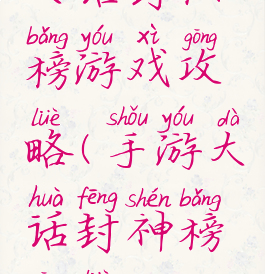 bǎng yóu xì gōng
榜游戏攻
lüè shǒu yóu dà
略(手游大
huà fēng shén bǎng
话封神榜